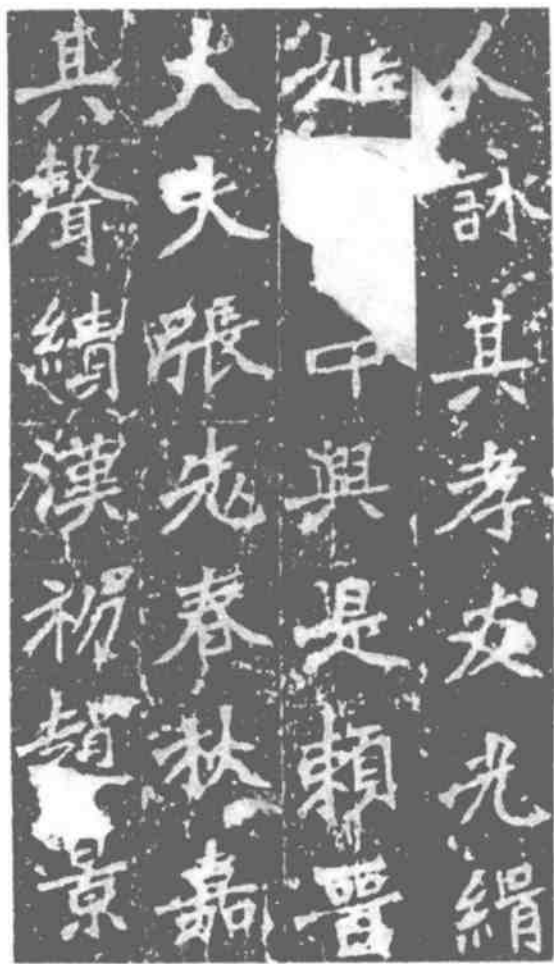 人詠其孝友光緝
姬中興是賴晉
大夫張老春秋嘉
其聲績漢初趙景